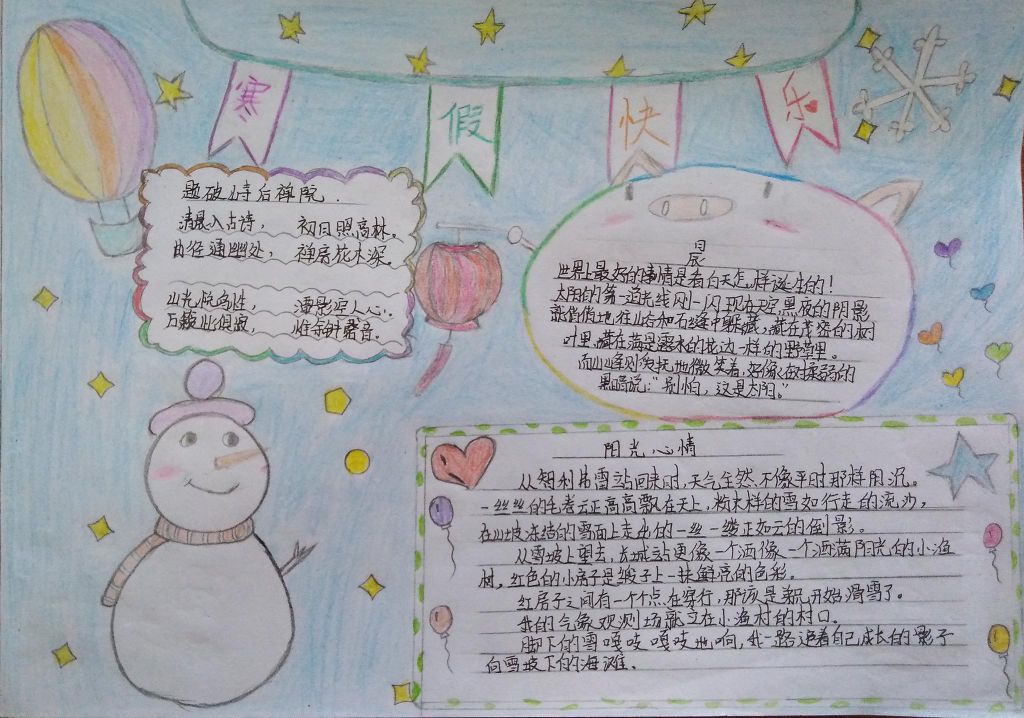 寒假快乐
题破山寺后禅院.
清晨入古诗， 初日照高林。
曲径通幽处， 禅房花木深。
山光悦鸟性， 潭影空人心.
万籁此俱寂， 惟余钟磬音。
晨
世界上最好的事情是看白天怎样诞生的！
太阳的第一道光线闪一闪现天空,黑夜的阴影
就悄悄地往山谷和石缝中躲藏，藏在茂密的树
叶里,藏在满是露水的花边一样的野草里。
而山峰则 地微笑着，好像在对柔弱的
黑暗说：“别怕，这是太阳。”
阳光心情
从智利弗雷站回来时，天气全然不像平时那样阴沉。
一丝丝的毛卷云正高高飘在天上，粉末样的雪如行走的流沙，
在山坡冻结的雪面上走出的一丝一缕正如云的倒影。
从雪坡上望去，长城站更像一个洒像一个洒满阳光的小渔
村。红色的小房子是缎子上一抹鲜亮的色彩。
红房子之间有一个个点在穿行，那该是 开始滑雪了。
我的气象观测场就立在小渔村的村口。
脚下的雪嘎吱嘎吱地响，我一路追着自己成长的影子
向雪坡下的海滩。